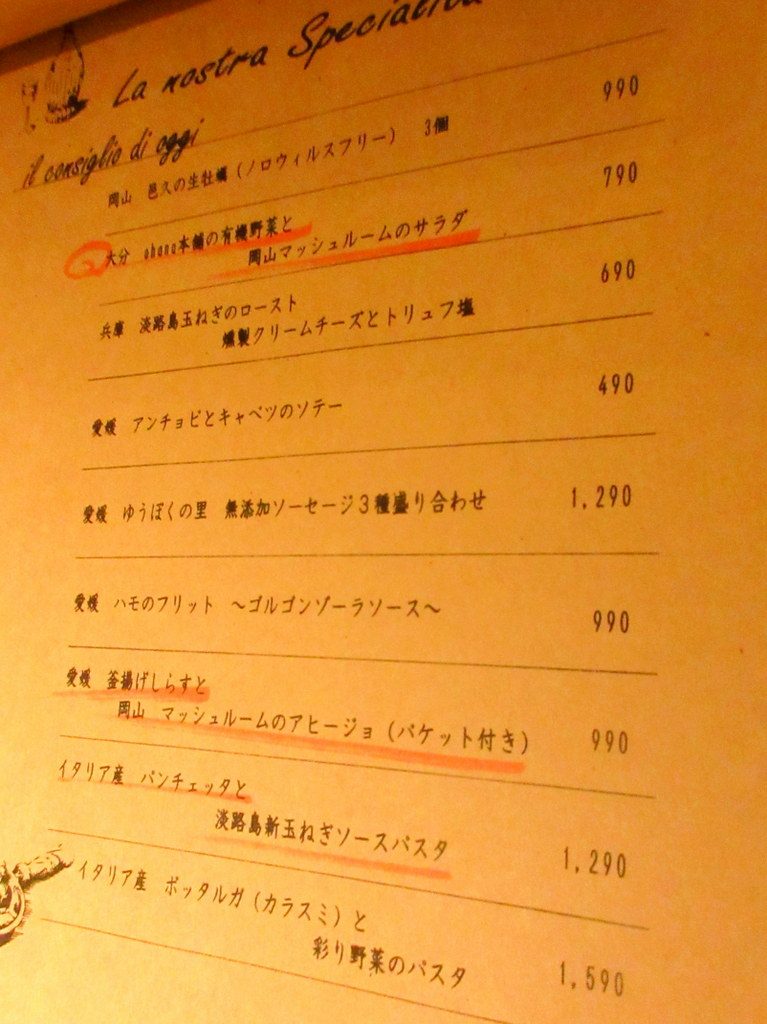 La nostra Specialità
il consiglio di oggi
岡山 邑久の生牡蠣(ノロウィルスフリー) 3個 990
大分 ohana本舗の有機野菜と
岡山マッシュルームのサラダ 790
兵庫 淡路島玉ねぎのロースト
燻製クリームチーズとトリュフ塩 690
愛媛 アンチョビとキャベツのソテー 490
愛媛 ゆうぼくの里 無添加ソーセージ3種盛り合わせ 1,290
愛媛 ハモのフリット ~ゴルゴンゾーラソース~ 990
愛媛 釜揚げしらすと
岡山 マッシュルームのアヒージョ(バケット付き) 990
イタリア産 パンチェッタと
淡路島新玉ねぎソースパスタ 1,290
イタリア産 ボッタルガ(カラスミ)と
彩り野菜のパスタ 1,590